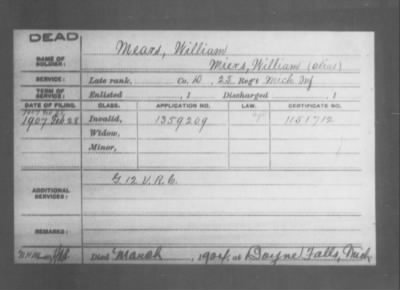 DEAD
NAME OF SOLDIER: Mears, William
Miers, William (alias)
SERVICE: Late rank, Co. D, 22 Reg't Mich Inf
TERM OF SERVICE: Enlisted , 1 Discharged , 1
DATE OF FILING. CLASS. APPLICATION NO. LAW. CERTIFICATE NO.
1907 Feb 28 Invalid, 1359209 1151712
Widow,
Minor,
ADDITIONAL SERVICES: G 12 V.R.C.
REMARKS:
Died March , 1924, at Boyne Falls, Mich